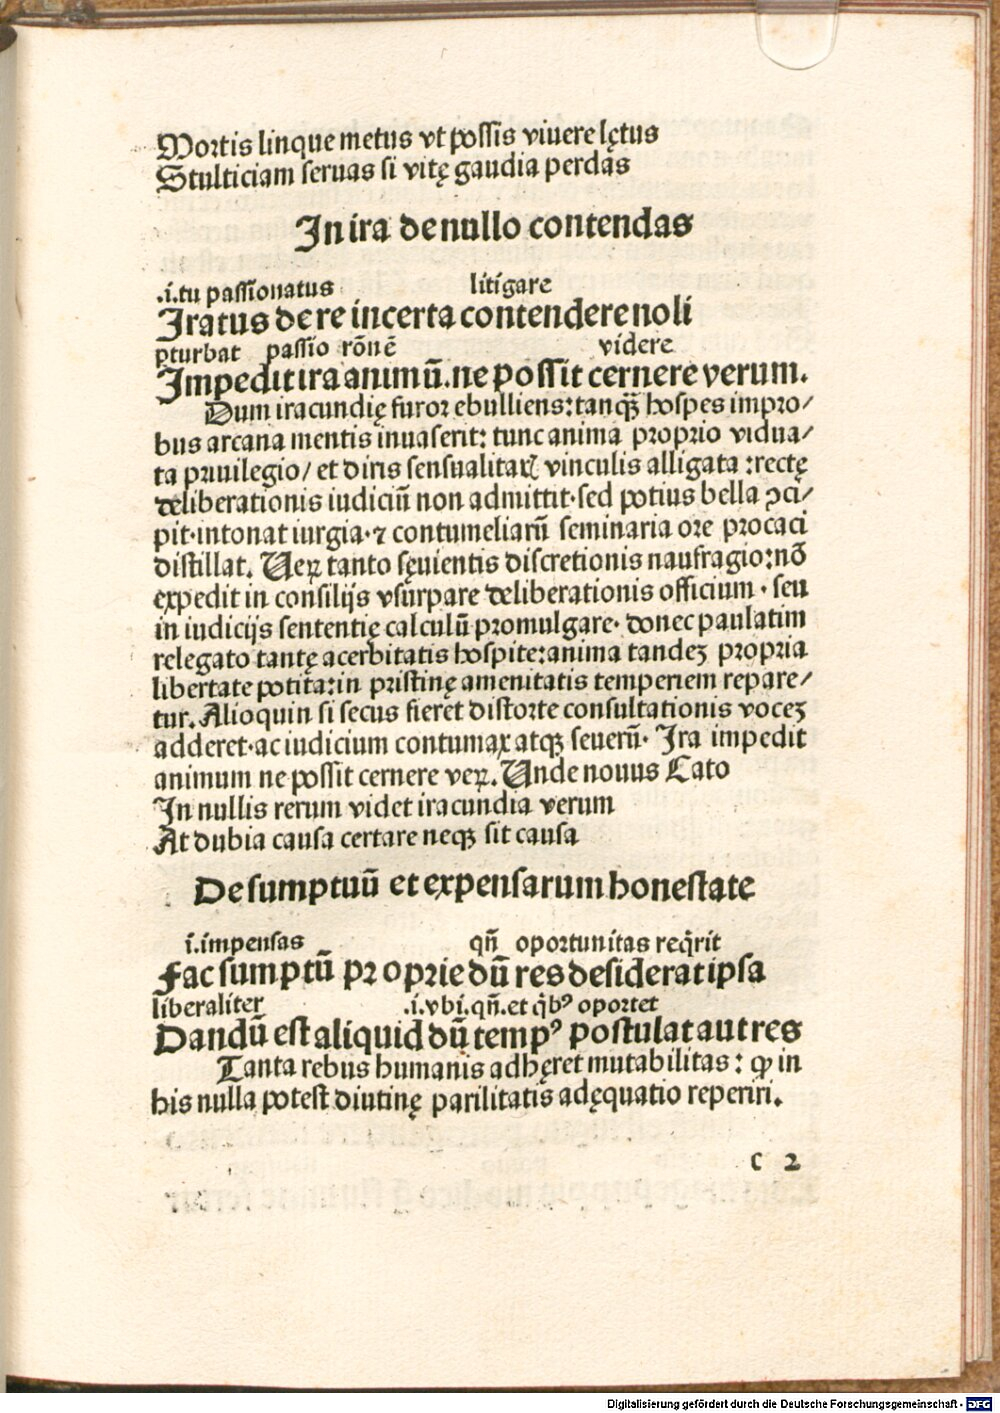 Mortis linque metus vt possis viuere lętus
Stulticiam seruas si vitę gaudia perdas
In ira de nullo contendas
.i. tu passionatus litigare
Iratus de re incerta contendere noli
ꝑturbat passio rõnẽ videre
Impedit ira animũ. ne possit cernere verum.
Dum iracundię furor ebulliens: tanq̃ȝ hospes impro/
bus arcana mentis inuaserit: tunc anima proprio vidua/
ta priuilegio/ et diris sensualitatꝝ vinculis alligata: rectę
deliberationis iudiciũ non admittit. sed potius bella ꝯci/
pit. intonat iurgia. ⁊ contumeliarũ seminaria ore procaci
distillat. Ueꝝ tanto sęuientis discretionis naufragio: nõ
expedit in consilijs vsurpare deliberationis officium. seu
in iudicijs sententię calculũ promulgare. donec paulatim
relegato tantę acerbitatis hospite: anima tandeȝ propria
libertate potita: in pristinę amenitatis temperiem repare/
tur. Alioquin si secus fieret distorte consultationis voceȝ
adderet. ac iudicium contumax atqȝ seuerũ. Ira impedit
animum ne possit cernere veꝝ. Unde nouus Cato
In nullis rerum videt iracundia verum
At dubia causa certare neqȝ sit causa
De sumptuũ et expensarum honestate
i. impensas qñ oportunitas req̇rit
Fac sumptũ proprie dũ res desiderat ipsa
liberaliter .i. vbi. qñ. et q̇bꝰ oportet
Dandũ est aliquid dũ tempꝰ postulat aut res
Tanta rebus humanis adhęret mutabilitas: ꝙ in
his nulla potest diutinę parilitatis adęquatio reperiri.
c 2
Digitalisierung gefördert durch die Deutsche Forschungsgemeinschaft - DFG